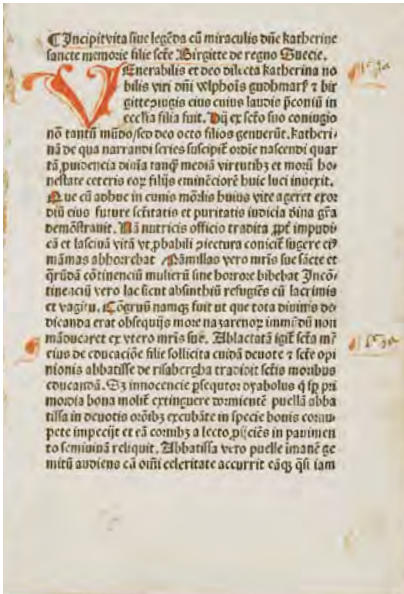 ¶ Incipit vita siue legẽda cũ miraculis dñe katherine
sancte memorie filie scte Birgitte de regno Suecie.
VEnerabilis et deo dilecta katherina no
bilis viri dñi wlphois gudhmarſ ⁊ bir
gitte ꝯiugis eius cuius laudis p̃coniũ in
ecclĩa filia fuit. Hij ex scto suo coniugio
nõ tantũ mũdo/sed deo octo filios genuerũt. katheri
nã de qua narrandi series suscipit᷑ ordie nascendi quar
tã ꝓuidencia diuia tanqʒ mediã virtutibꝫ et morũ ho
nestate ceteris eoꝝ filijs emincciorẽ huic luci inuexit.
Que cũ adhuc in cunis mõlis huius vite ageret exor
diũ eius future sctitatis et puritatis iudicia diña gr̃a
demõstrauit. Nã nutricis officio tradita ꝓpt᷑ impudi
cã et lasciuã vitã vt ꝓbabili ꝯiectura conicit᷑ sugere eiꝰ
mãmas abhorrebat. Mamillas vero mr̃is sue sãcte et
qr̃ũdã cõtinenciũ mulierũ sine horrore bibebat Incõ
tinẽciũ vero lac sicut absinthiũ refugiẽs cũ lacrimis
et vagitu. Cõgruũ namqʒ fuit ut que tota diuinis de
dicanda erat obsequijs more nazarenoꝝ immũdũ non
mãducaret ex vtero mr̃is sue. Ablactatã igit᷑ scta mr̃
eius de educaciõe filie sollicita cuidã deuote ⁊ scte opi
nionis abbatisse de risabergha tradidit sctis moribus
educandã. Sꝫ innocencie ꝑsequtor dyabolus q̃ sp̃ pri
mordia bona molit᷑ extinguere dormientẽ puellã abba
tissa in deuotis or̃õibꝫ excubãte in specie bouis cornu
pete impecijt et eã cornibꝫ a lecto ꝓijciẽs in pauimen
to semiuiuã reliquit. Abbatissa vero puelle imanẽ ge
mitũ audiens cũ oĩm celeritate accurrit eãqʒ q̃si iam